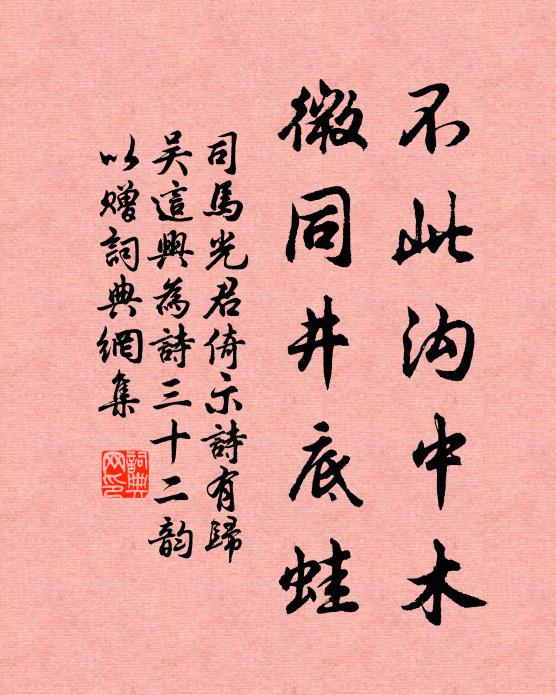 不此沟中木
微同井底蛙
司馬光君倚示詩有歸
吴這興為詩三十二韵
以赠詞典網集
詞典网印